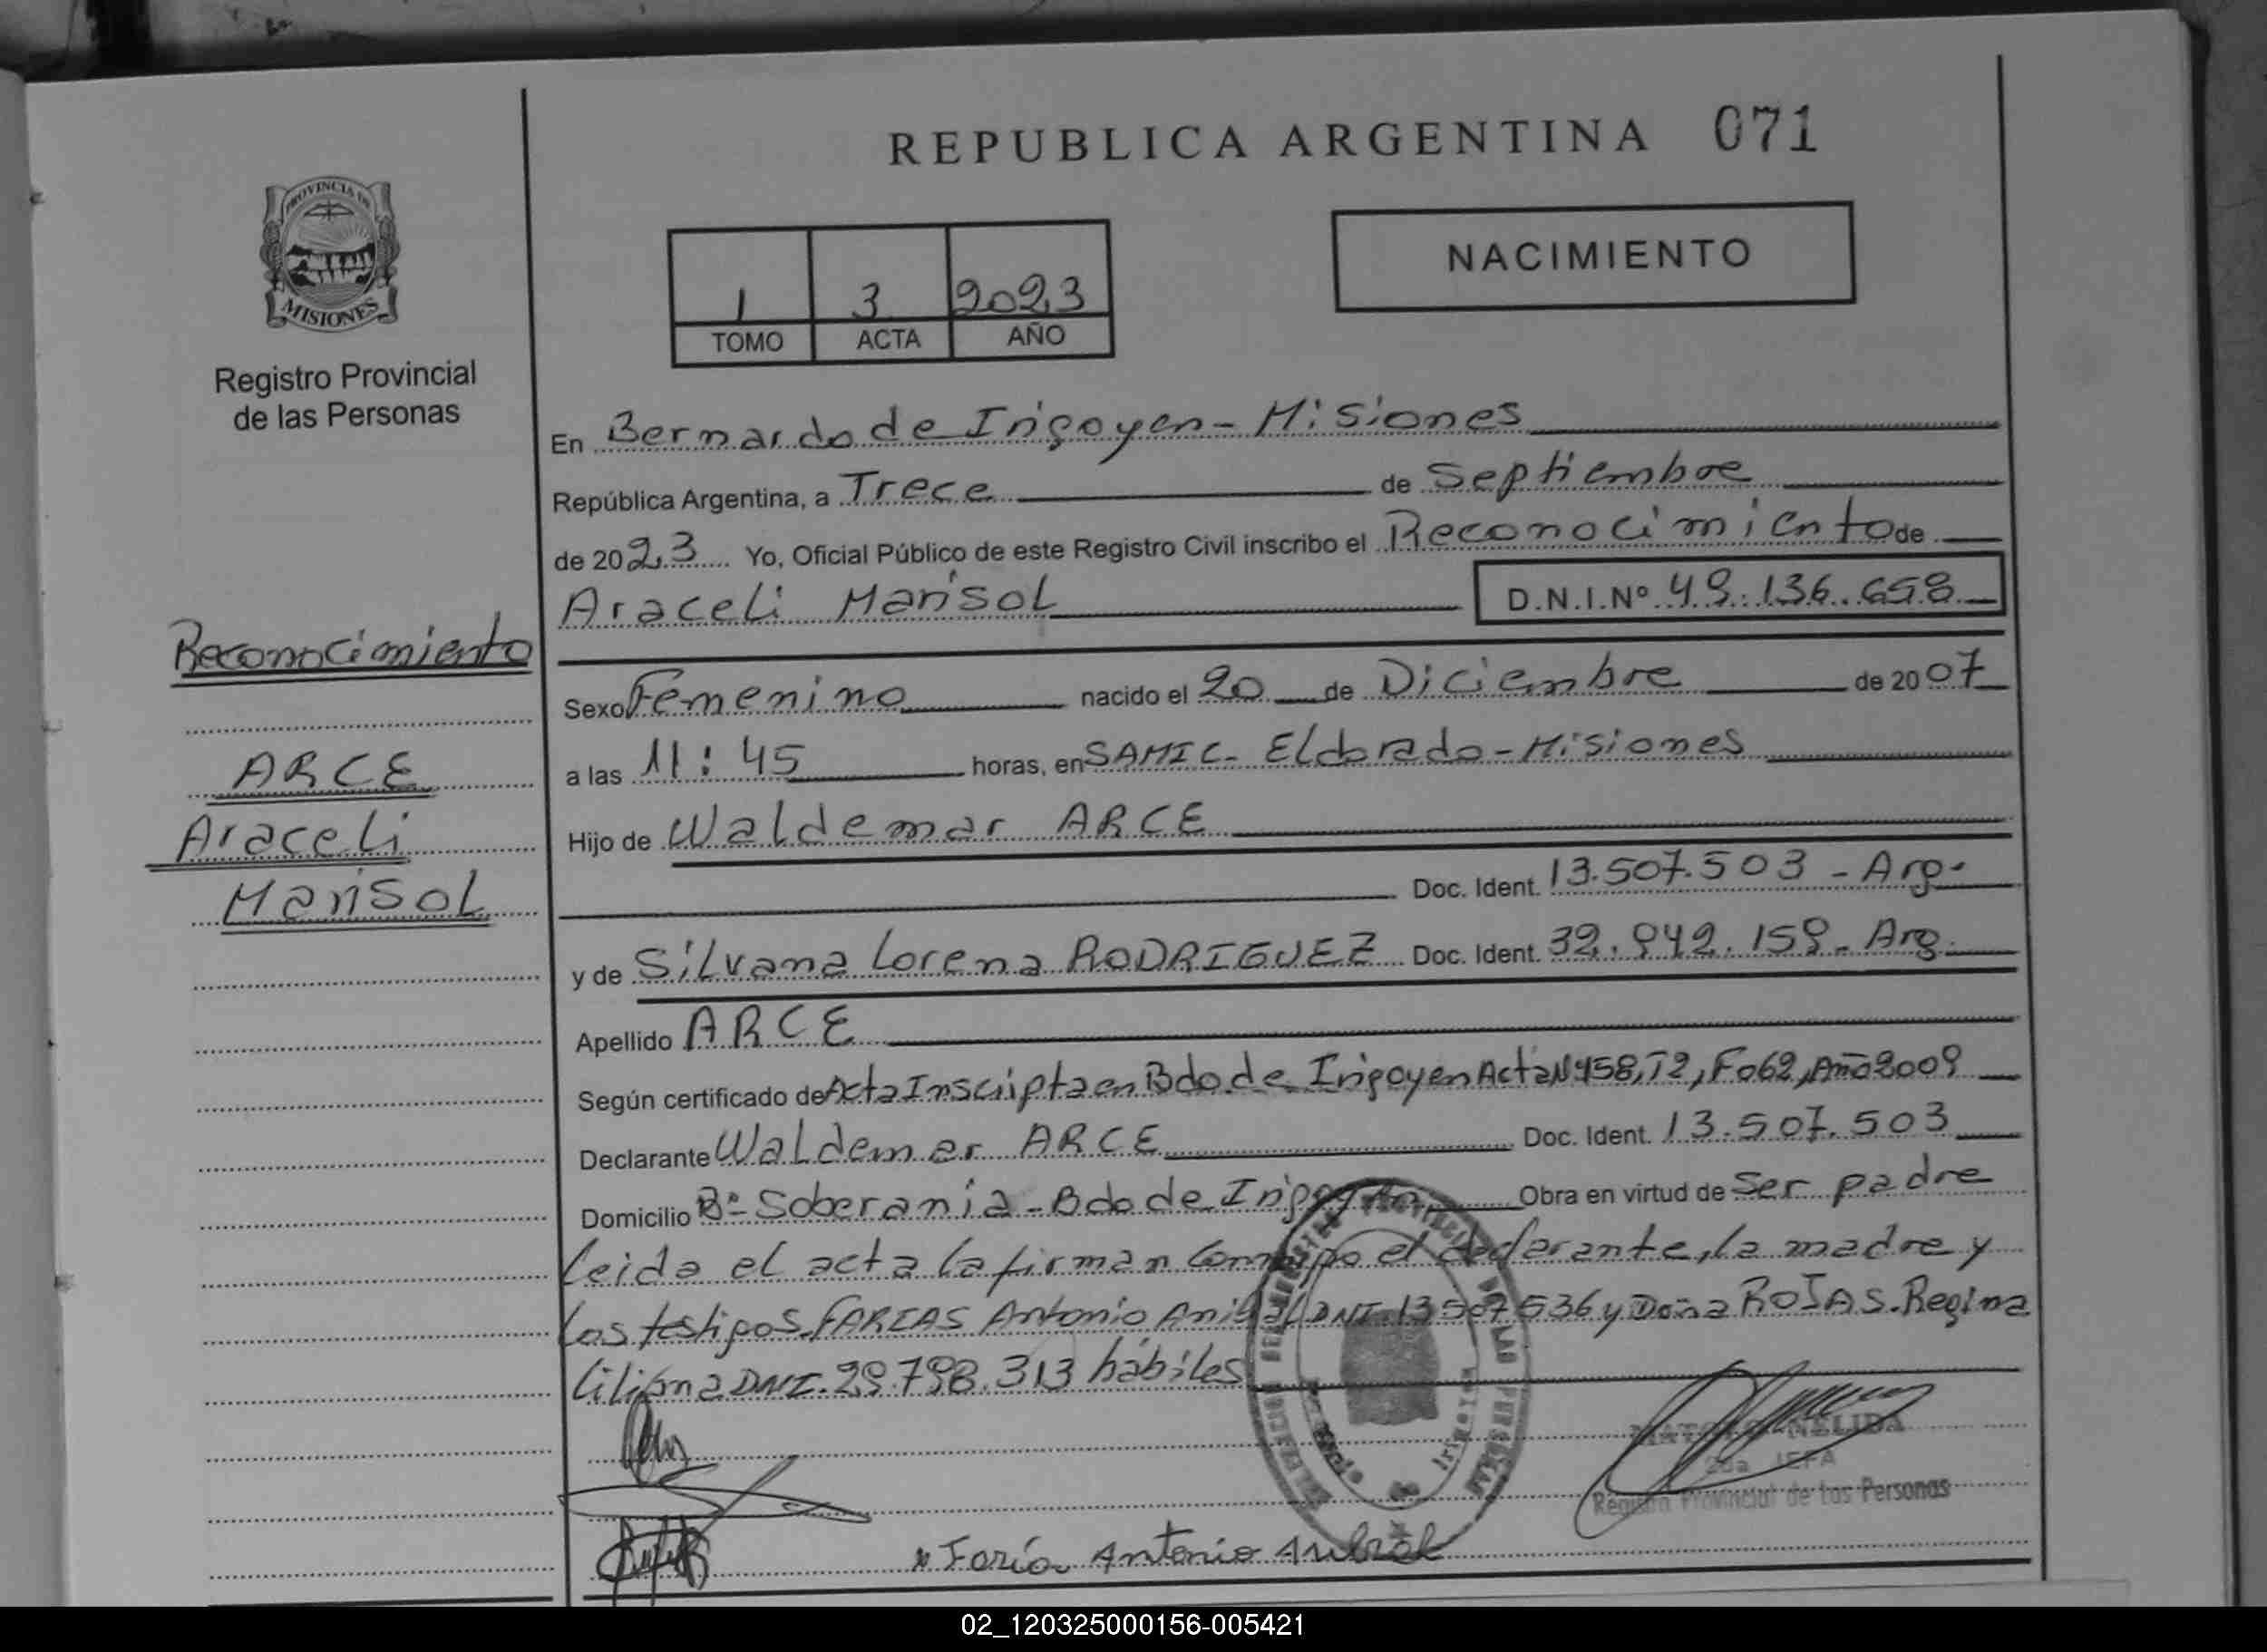 REPUBLICA ARGENTINA 071
PROVINCIA DE
MISIONES
Registro Provincial
de las Personas
NACIMIENTO
1 3 2023
TOMO ACTA AÑO
En Bernardo de Irigoyen - Misiones
República Argentina, a Trece de Septiembre
de 2023 Yo, Oficial Público de este Registro Civil inscribo el Reconocimiento de
Araceli Marisol D.N.I.Nº 49.136.658
Reconocimiento
ARCE
Araceli
Marisol
Sexo Femenino nacido el 20 de Diciembre de 2007
a las 11:45 horas, en SAMIC - Eldorado - Misiones
Hijo de Waldemar ARCE
Doc. Ident. 13.507.503 - Arg.
y de Silvana Lorena RODRIGUEZ Doc. Ident. 32.942.159 - Arg.
Apellido ARCE
Según certificado de Acta Inscripta en Bdo de Irigoyen Acta Nº458, T2, Fo62, Año2009
Declarante Waldemar ARCE Doc. Ident. 13.507.503
Domicilio Bº Soberania - Bdo de Irigoyen Obra en virtud de Ser padre
Leida el acta la firman conmigo el declarante, la madre y
los testigos. FARIAS Antonio Anibal DNI. 13507536 y Doña ROJAS. Regina
Liliana DNI. 29.798.313 hábiles
NELIDA
2da JEFA
Registro Provincial de las Personas
Faría Antonio Anibal
02_120325000156-005421